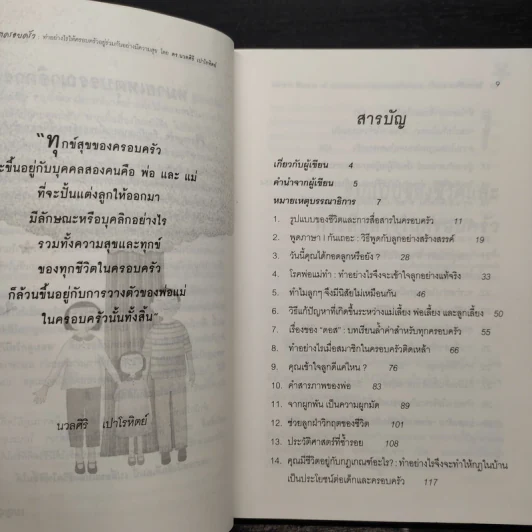 ครอบครัว : ทำอย่างไรให้ครอบครัวอยู่ร่วมกันอย่างมีความสุข โดย ดร.นวลศิริ เปาโรหิตย์
"ทุกข์สุขของครอบครัว
จะขึ้นอยู่กับบุคคลสองคนคือ พ่อ และ แม่
ที่จะปั้นแต่งลูกให้ออกมา
มีลักษณะหรือบุคลิกอย่างไร
รวมทั้งความสุขและทุกข์
ของทุกชีวิตในครอบครัว
ก็ล้วนขึ้นอยู่กับการวางตัวของพ่อแม่
ในครอบครัวนั้นทั้งสิ้น"
นวลศิริ เปาโรหิตย์
9
สารบัญ
เกี่ยวกับผู้เขียน 4
คำนำจากผู้เขียน 5
หมายเหตุบรรณาธิการ 7
1. รูปแบบของชีวิตและการสื่อสารในครอบครัว 11
2. พูดภาษา i กันเถอะ : วิธีพูดกับลูกอย่างสร้างสรรค์ 19
3. วันนี้คุณได้กอดลูกหรือยัง ? 28
4. โรคพ่อแม่ทำ : ทำอย่างไรจึงจะเข้าใจลูกอย่างแท้จริง 33
5. ทำไมลูกๆ จึงมีนิสัยไม่เหมือนกัน 46
6. วิธีแก้ปัญหาที่เกิดขึ้นระหว่างแม่เลี้ยง พ่อเลี้ยง และลูกเลี้ยง 50
7. เรื่องของ "ดอส" : บทเรียนล้ำค่าสำหรับทุกครอบครัว 55
8. ทำอย่างไรเมื่อสมาชิกในครอบครัวติดเหล้า 66
9. คุณเข้าใจลูกดีแค่ไหน ? 76
10. คำสารภาพของพ่อ 83
11. จากผูกพัน เป็นความผูกมัด 89
12. ช่วยลูกฝ่าวิกฤตของชีวิต 101
13. ประวัติศาสตร์ที่ซ้ำรอย 108
14. คุณมีชีวิตอยู่กับกฎเกณฑ์อะไร? : ทำอย่างไรจึงจะทำให้กฎในบ้าน
เป็นประโยชน์ต่อเด็กและครอบครัว 117